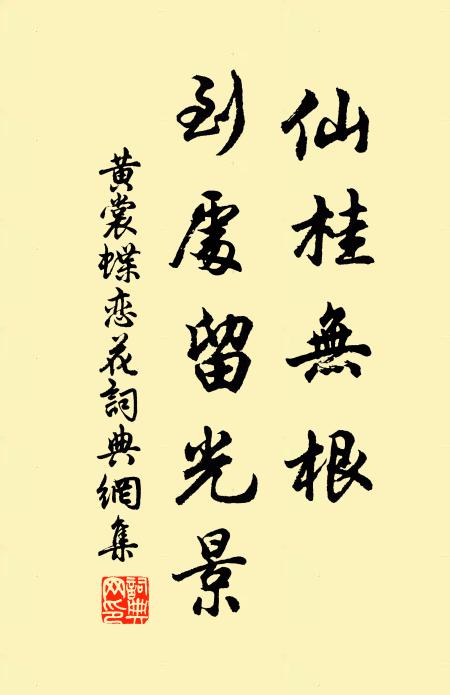 仙桂無根
到處留光景
黄裳蝶恋花詞典網集
詞典網印